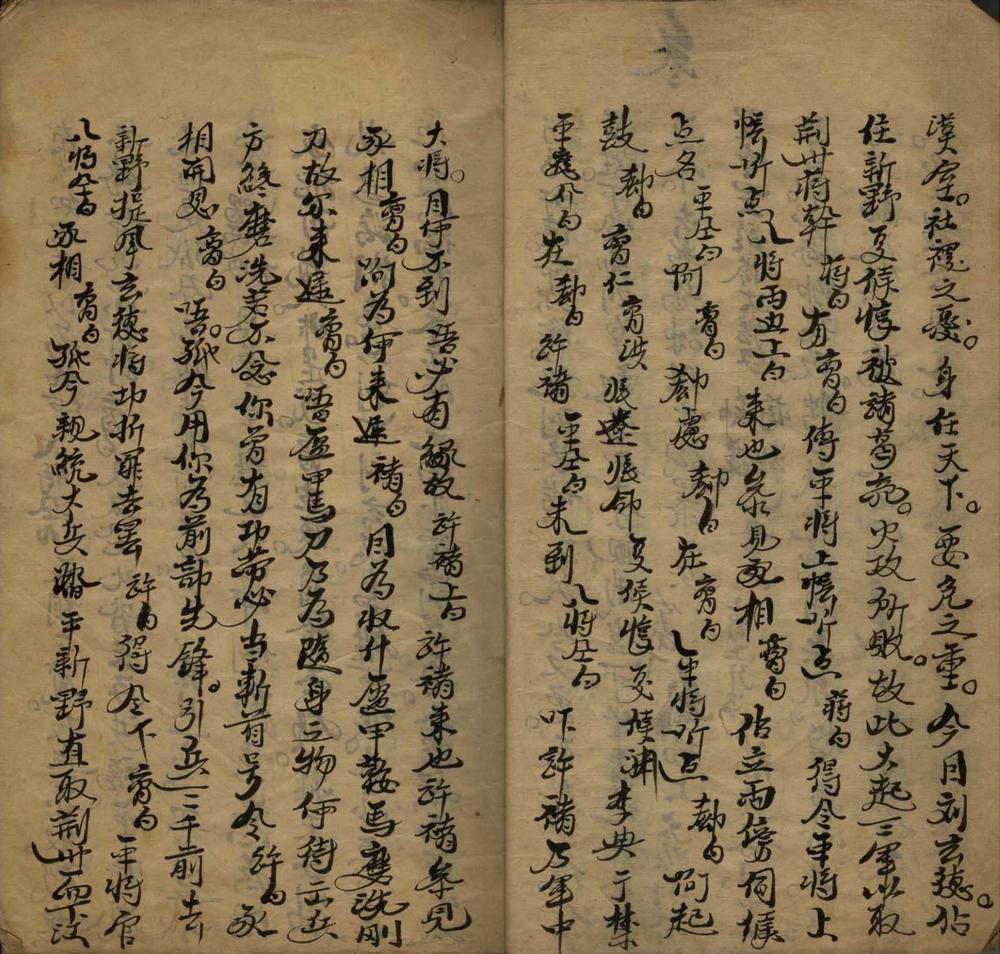 漢室。社稷之憂。身任天下。要免之重。今日刘玄德。佔
住新野夏候惇被諸葛亮。火攻所敗。故此大起三軍以取
荆州蒋幹蒋白有曹白傳平將上帳听点蒋白得令平將上
帳听点八將両边上白来也叅見丞相曹白佔立両傍伺候
点名平全白啊曹白勣處勣白在曹白平將听点勣白啊起
鼓勣白曹仁曹洪張遼張郃夏侯惇夏侯渊李典于禁
平應介白在勣白許褚平全白未到八將全白吓許褚乃軍中
大將。自伊不到語必有緣故許褚上白許褚来也許褚叅見
丞相曹白啊為伊来遲褚白目為收什盔甲鞍馬磨洗剛
刀故尔来遲曹白唔盔甲馬刀乃為隨身之物伊待出兵
方終磨洗若不念你曾有功劳必当斬首号令許白丞
相開恩曹白唔。孤今用你為前部先鋒。引兵三千前去
新野捉拿玄德將功折罪去罢許白得令下曹白平將官
八將全白丞相曹白孤今親統大兵踏平新野直取荆州而